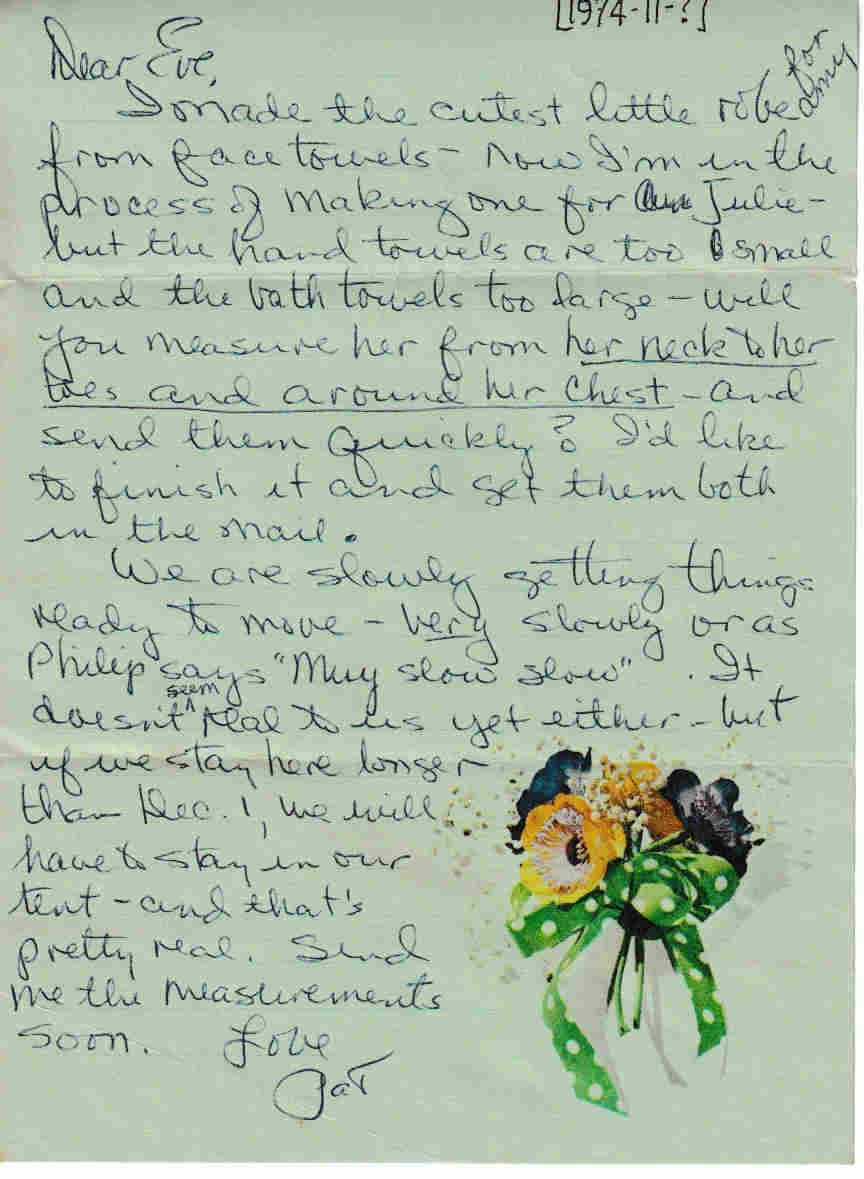 [1974-11-?]
Dear Eve,
I made the cutest little robe for Amy
from face towels - now I'm in the
process of making one for Julie -
but the hand towels are too small
and the bath towels too large - will
you measure her from her neck to her
toes and around her chest - and
send them quickly? I'd like
to finish it and get them both
in the mail.
We are slowly getting things
ready to move - very slowly or as
Philip says "Muy slow slow". It
doesn't seem real to us yet either - but
if we stay here longer
than Dec. 1, we will
have to stay in our
tent - and that's
pretty real. Send
me the measurements
soon. Love
Pat